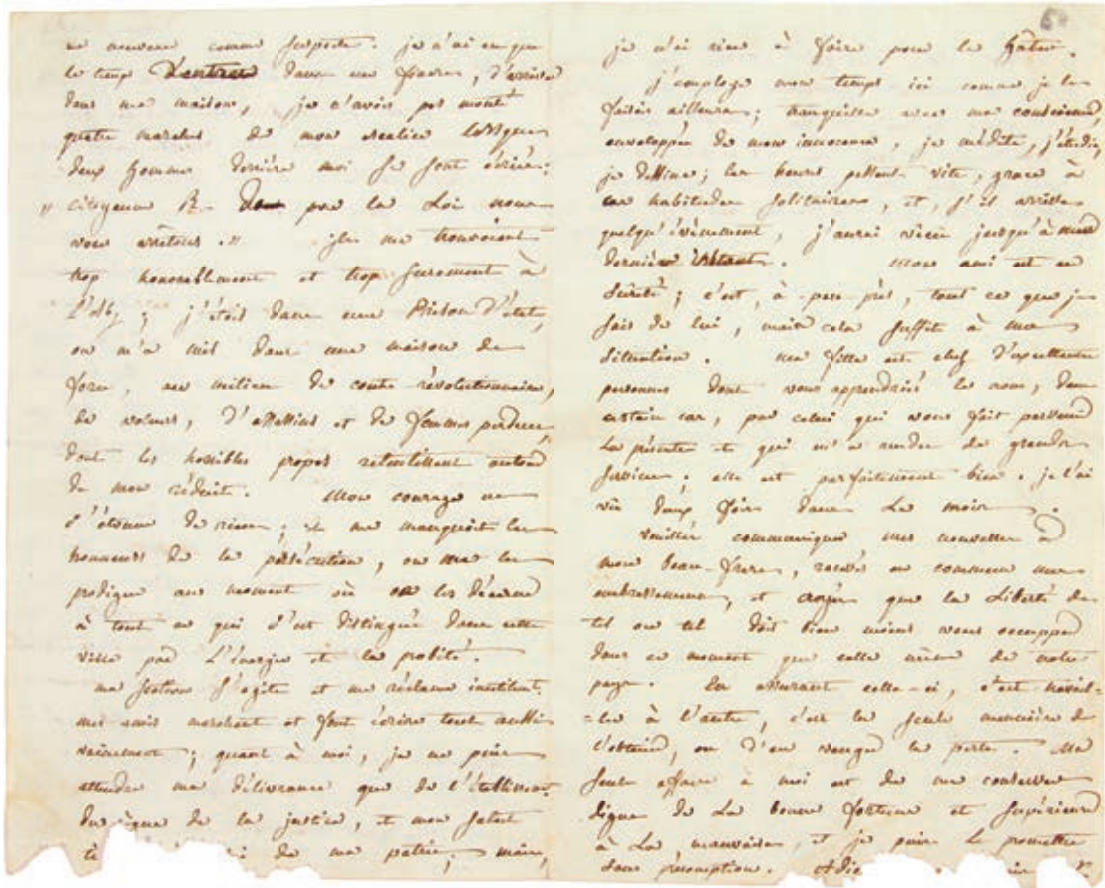 de nouveau comme suspecte. je n'ai eu que
le temps d'entrer dans un fiacre, d'arriver
dans ma maison, je n'avois pas monté
quatre marches de mon escalier lorsque
deux hommes derrière moi se sont écriés:
" Citoyenne R- par la Loi nous
vous arrêtons." ils me trouvoient
trop honorablement et trop surement à
l'abb; j'étois dans une Prison d'état,
on m'a mis dans une maison de
force, au milieu de contre révolutionnaires,
de voleurs, d'assassins et de femmes perdues,
dont les horribles propos retentissent autour
de mon réduit. Mon courage ne
s'étonne de rien; il me manquoit les
honneurs de la persécution, on me les
prodigue au moment où on les décerne
à tout ce qui s'est distingué dans cette
ville par l'énergie et la probité.
ma section s'agite et me réclame inutilement,
mes amis marchent et font écrire tout aussi
vainement; quant à moi, je ne puis
attendre ma délivrance que de l'établissement
du règne de la justice, et mon salut
de ma patrie; mais,
je n'ai rien à faire pour le hâter.
j'employe mon temps ici comme je le
faisois ailleurs; tranquille avec ma conscience,
enveloppée de mon innocence, je médite, j'étudie,
je dessine; les heures passent vite, grace à
ces habitudes solitaires, et, s'il arrive
quelqu'évènement, j'aurai vécu jusqu'à mon
dernier instant. Mon ami est en
sûreté; c'est, à-peu-près, tout ce que je
sais de lui, mais cela suffit à ma
situation. ma fille est chez d'excellentes
personnes dont vous apprendriés le nom, dans
certain cas, par celui qui vous fait parvenir
la présente et qui m'a rendu de grands
services. elle est parfaitement bien. je l'ai
vu deux fois dans le mois.
Veuillés communiquer mes nouvelles à
mon beau-frere, recevés en commun mes
embrassemens, et croyés que la Liberté de
tel ou tel doit bien moins vous occuper
dans ce moment que celle même de notre
pays. En assurant celle-ci, c'est travail-
-ler à l'autre, c'est la seule manière de
l'obtenir, ou d'en venger la perte. Ma
seule affaire à moi est de me conserver
digne de la bonne fortune et supérieure
à la mauvaise, et je puis le promettre
sans présomption.